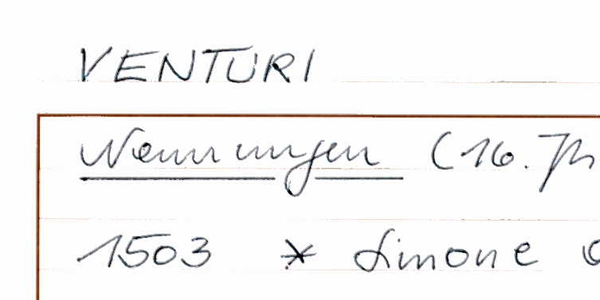 VENTURI
Nennungen (16. Jh
1503 * Simone